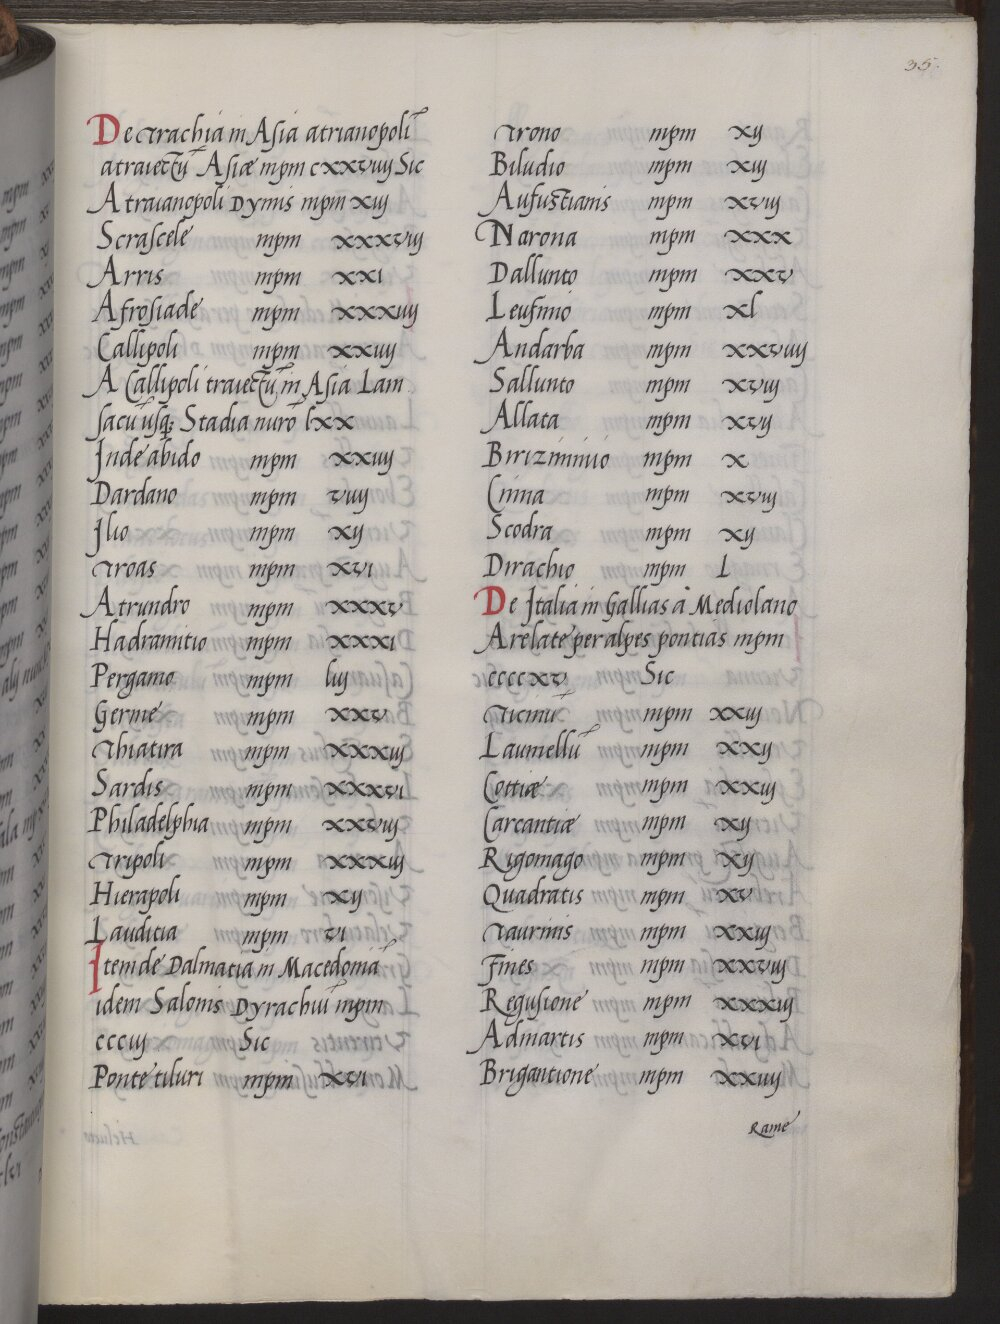 35
De trachia in Asia atrianopoli
atraiectū Asiæ mpm cxxviiij Sic
Atraianopoli Dymis mpm xiij
Scrascele mpm xxxviij
Arris mpm xxi
Afrosiade mpm xxxiiij
Callipoli mpm xxiiij
A Callipoli traiectū in Asia Lam
sacū usq; Stadia nurō lxx
Inde abido mpm xxiiij
Dardano mpm viiij
Ilio mpm xij
troas mpm xvi
Atrundro mpm xxxv
Hadramitio mpm xxxi
Pergamo mpm liij
Germe mpm xxv
thiatira mpm xxxiij
Sardis mpm xxxvi
Philadelphia mpm xxviij
tripoli mpm xxxiij
Hierapoli mpm xij
Lauditia mpm vi
Item de Dalmatia in Macedoniā
idem Salonis Dyrachiū mpm
ccciij Sic
Ponte tiluri mpm xvi
trono mpm xij
Biludio mpm xiij
Aufustianis mpm xviij
Narona mpm xxx
Dallunto mpm xxv
Leufinio mpm xl
Andarba mpm xxviiij
Sallunto mpm xviij
Allata mpm xvij
Biriziminio mpm x
Cinna mpm xviij
Scodra mpm xij
Dirachio mpm L
De Italia in Gallias a Mediolano
Arelate per alpes pontias mpm
ccccxv Sic
ticinū mpm xxiij
Laumellū mpm xxij
Cottiæ mpm xxiij
Carcantiæ mpm xij
Rigomago mpm xij
Quadratis mpm xv
taurinis mpm xxiij
Fines mpm xxviij
Regusione mpm xxxiij
Admartis mpm xvi
Brigantione mpm xxiiij
Rame